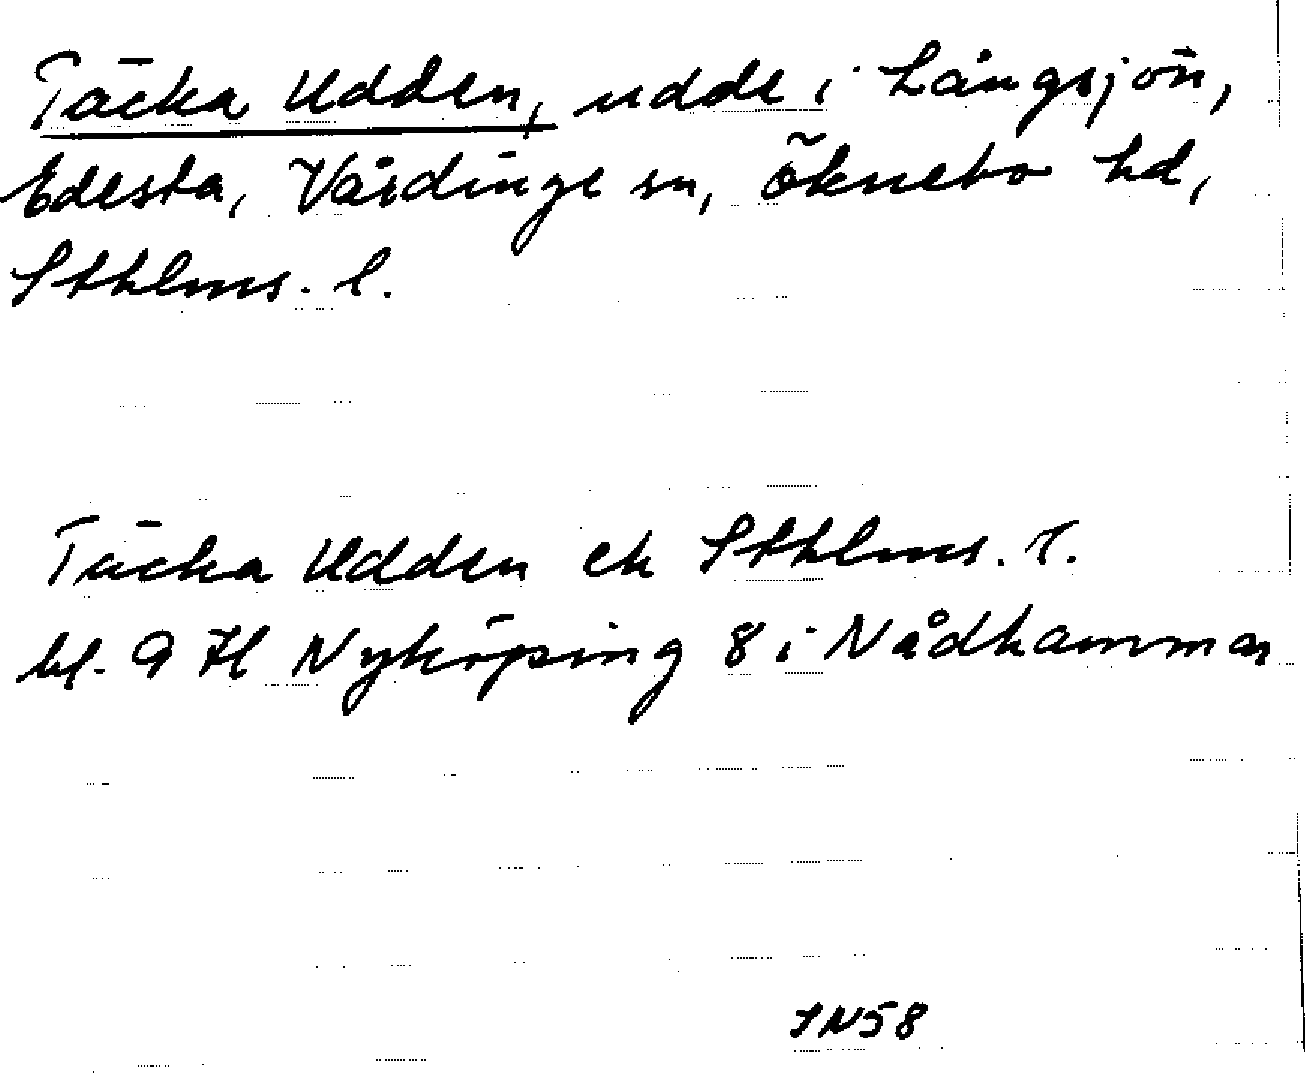 Täcka Udden, udde i Långsjön,
Edesta, Vårdinge sn, Öknebo hd,
Sthlms. l.
Täcka Udden ek Sthlms. l.
bl. 9 H Nyköping 8 i Nådhammar
IN58